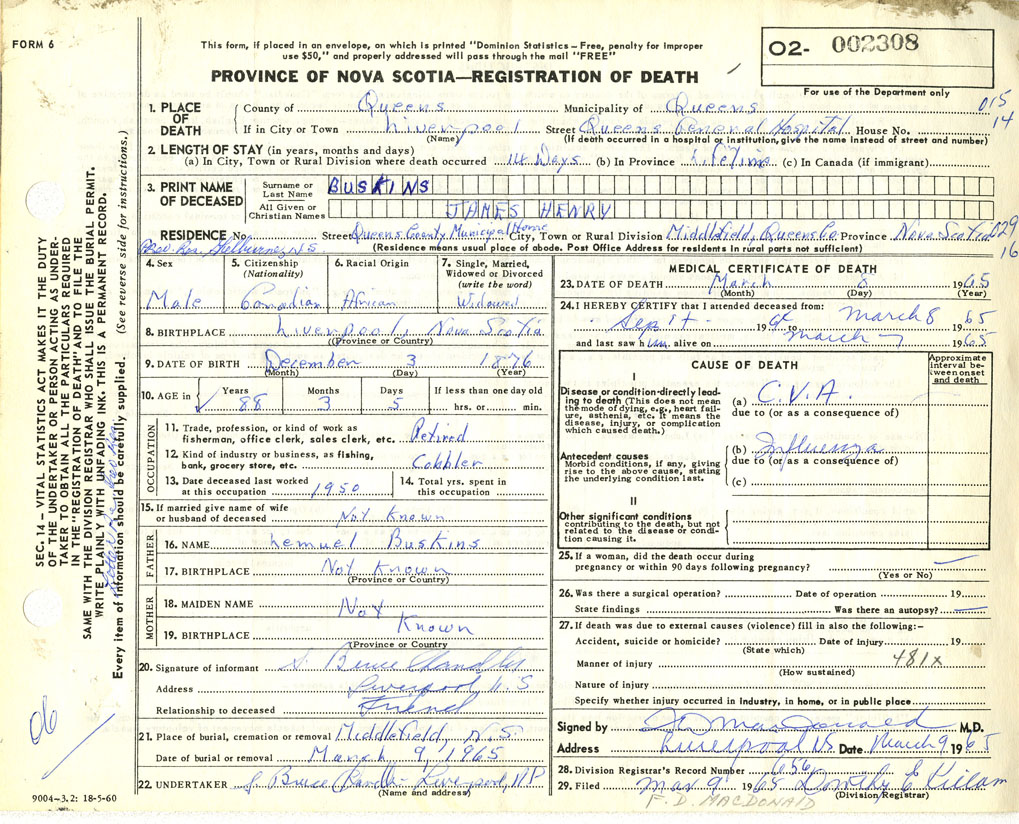 FORM 6
This form, if placed in an envelope, on which is printed "Dominion Statistics – Free, penalty for improper
use $50," and properly addressed will pass through the mail "FREE"
O2- 002308
For use of the Department only
PROVINCE OF NOVA SCOTIA—REGISTRATION OF DEATH
015
14
1. PLACE OF DEATH
County of Queens Municipality of Queens
If in City or Town Liverpool Street Queens General Hospital House No.
(Name) (If death occurred in a hospital or institution, give the name instead of street and number)
2. LENGTH OF STAY (in years, months and days)
(a) In City, Town or Rural Division where death occurred 14 Days (b) In Province Lifetime (c) In Canada (if immigrant)
3. PRINT NAME OF DECEASED
Surname or Last Name BUSKINS
All Given or Christian Names JAMES HENRY
RESIDENCE No. Street Queens County Municipal Home City, Town or Rural Division Middlefield, Queens Co Province Nova Scotia
029
16
Prev. Res. Shelburne, N.S.
(Residence means usual place of abode. Post Office Address for residents in rural parts not sufficient)
4. Sex
Male
5. Citizenship
(Nationality)
Canadian
6. Racial Origin
African
7. Single, Married, Widowed or Divorced
(write the word)
Widowed
8. BIRTHPLACE Liverpool, Nova Scotia
(Province or Country)
9. DATE OF BIRTH December 3 1876
(Month) (Day) (Year)
10. AGE in Years 88 Months 3 Days 5 If less than one day old
hrs. or min.
OCCUPATION
11. Trade, profession, or kind of work as
fisherman, office clerk, sales clerk, etc. Retired
12. Kind of industry or business, as fishing,
bank, grocery store, etc. Cobbler
13. Date deceased last worked
at this occupation 1950
14. Total yrs. spent in
this occupation
15. If married give name of wife
or husband of deceased Not Known
FATHER
16. NAME Lemuel Buskins
17. BIRTHPLACE Not Known
(Province or Country)
MOTHER
18. MAIDEN NAME Not
19. BIRTHPLACE Known
(Province or Country)
20. Signature of informant J. Bruce Chandler
Address Liverpool, N.S
Relationship to deceased Friend
21. Place of burial, cremation or removal Middlefield, N.S.
Date of burial or removal March 9, 1965
22. UNDERTAKER J. Bruce Chandler Liverpool, NS
(Name and address)
MEDICAL CERTIFICATE OF DEATH
23. DATE OF DEATH March 8 1965
(Month) (Day) (Year)
24. I HEREBY CERTIFY that I attended deceased from:
Sept 1964 to March 8 1965
and last saw him alive on March 7 1965
CAUSE OF DEATH
Approximate interval between onset and death
I
Disease or condition directly leading to death (This does not mean the mode of dying, e.g., heart failure, asthenia, etc. It means the disease, injury, or complication which caused death.)
(a) C.V.A.
due to (or as a consequence of)
Antecedent causes
Morbid conditions, if any, giving rise to the above cause, stating the underlying condition last.
(b) Influenza
due to (or as a consequence of)
(c)
II
Other significant conditions
contributing to the death, but not related to the disease or condition causing it.
25. If a woman, did the death occur during
pregnancy or within 90 days following pregnancy?
(Yes or No)
26. Was there a surgical operation? Date of operation 19
State findings Was there an autopsy?
27. If death was due to external causes (violence) fill in also the following:-
Accident, suicide or homicide? Date of injury 19
(State which)
Manner of injury 481x
(How sustained)
Nature of injury
Specify whether injury occurred in Industry, in home, or in public place
Signed by F D MacDonald M.D.
Address Liverpool NS Date March 9 1965
28. Division Registrar's Record Number 656
29. Filed Mar 9 1965 Dorothy E Killam
(Division Registrar)
F. D. MACDONALD
SEC. 14 – VITAL STATISTICS ACT MAKES IT THE DUTY
OF THE UNDERTAKER OR PERSON ACTING AS UNDER-
TAKER TO OBTAIN ALL THE PARTICULARS REQUIRED
IN THE "REGISTRATION OF DEATH" AND TO FILE THE
SAME WITH THE DIVISION REGISTRAR WHO SHALL ISSUE THE BURIAL PERMIT.
WRITE PLAINLY WITH UNFADING INK. THIS IS A PERMANENT RECORD.
Every item of information should be carefully supplied. (See reverse side for instructions.)
06
9004–3.2: 18-5-60